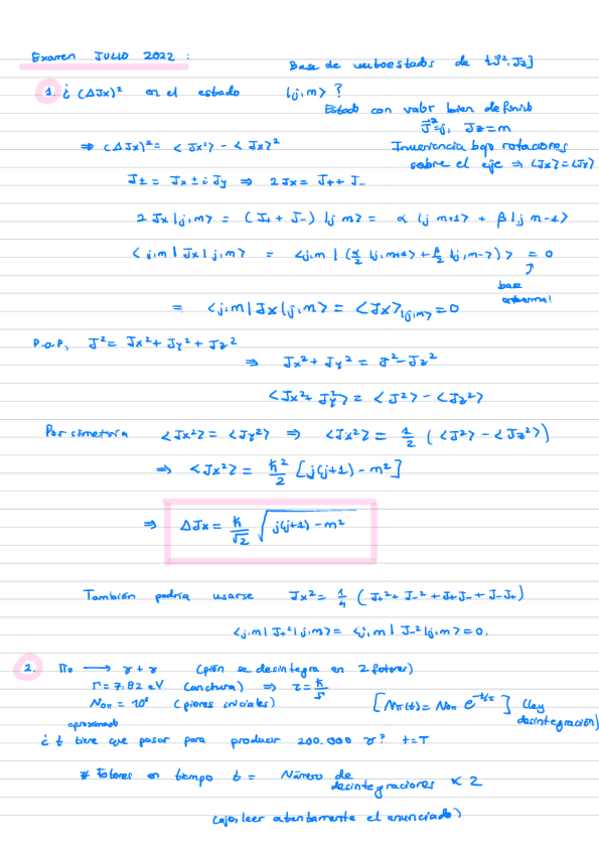 Examen JULIO 2022:
Base de autoestados de {J², Jz}
1. ¿(ΔJx)² en el estado |j,m>?
Estado con valor bien definido
J²=j, Jz=m
⇒ (ΔJx)² = <Jx²> - <Jx>²
Invariencia bajo rotaciones
sobre el eje ⇒ <Jx>=<Jy>
J± = Jx ± i Jy ⇒ 2Jx = J+ + J-
2 Jx |j,m> = (J+ + J-) |j m> = α |j m+1> + β |j m-1>
<j,m| Jx |j,m> = <j,m| (α/2 |j,m+1> + β/2 |j,m-1>)> = 0
base
ortonormal
= <j,m| Jx |j,m> = <Jx>|j,m> = 0
P.o.P, J² = Jx² + Jy² + Jz²
⇒ Jx² + Jy² = J² - Jz²
<Jx² + Jy²> = <J²> - <Jz²>
Por simetría <Jx²> = <Jy²> ⇒ <Jx²> = 1/2 (<J²> - <Jz²>)
⇒ <Jx²> = ħ²/2 [j(j+1) - m²]
⇒ ΔJx = ħ/√2 √j(j+1) - m²
También podría usarse Jx² = 1/4 (J+² + J-² + J+J- + J-J+)
<j,m| J+² |j,m> = <j,m| J-² |j,m> = 0.
2. Π₀ → γ + γ (pión se desintegra en 2 fotones)
Γ = 7,82 eV (anchura) ⇒ τ = ħ/Γ
N₀π = 10⁶ (piones iniciales) [Nπ(t) = N₀π e^-t/τ] (ley
desintegración)
aproximado
¿t tiene que pasar para producir 200.000 γ? t=T
# Fotones en tiempo t = Número de
desintegraciones × 2
(ojo, leer atentamente el enunciado)